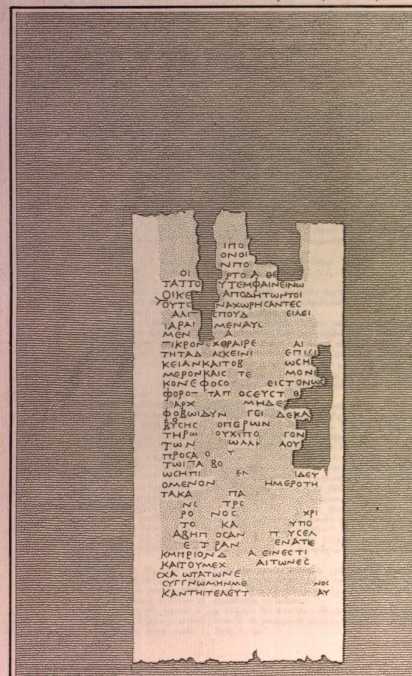 ΙΠΟ
ΟΝΟΙ
ΝΠΟ
ΟΙ ΡΤΟ Α ΘΕ
ΤΑΤΤΟ ΥΤΕΜΦΑΙΝΕΙΝΩ
ΟΙΚΕ ΑΠΟΔΗΤΩΡΤΟΙ
ΟΥΤΕ ΝΑΧΩΡΗCΑΝΤΕC
ΑΛΓ CΠΟΥΔ ΕΙΛΕΙ
ΙΑΡΑΙ ΜΕΝΑΥΙ
ΜΕΝ Α
ΠΙΚΡΟΝ ΧΘΡΑΙΡΕ ΑΙ
ΤΗΤΑΔ ΑCΚΕΙΝΙ ΕΠΙCΙ
ΚΕΙΑΝΚΑΙΤΟΒ ΩCΗ
ΜΕΡΟΝΚΑΙC ΤΕ ΜΟΝΙ
ΚΟΝΕΦΟCΟ ΕΙCΤΟΝΩ
ΦΟΡΟ ΤΑΠ ΟCΕΥCΤ Θ
ΑΡΧ ΜΗΔΕ
ΦΟΒΩΙΔΥΝ ΓΟΙ ΔΕΚΑ
ΔΥCΗC ΟΠΕΡΩΝ
ΤΗΡΩ ΟΥΧΙΠΟ ΓΟΝ
ΤΩΝ ΩΛΛΗ ΛΟΥ
ΠΡΟCΑ Ο Υ
ΤΩΙΠΑ ΒΟ
ΩCΗΠΙ ΕΝ ΙΔΕΥ
ΟΜΕΝΟΝ ΗΜΕΡΟΤΗ
ΤΑΚΑ ΠΑ
ΝΙ ΤΡC
ΡΟ ΝΟC ΧΡΙ
ΤΟ ΚΑ ΥΠΟ
ΑΒΗΠ ΟCΑΝ Π ΥCΕΛ
Ε ΤΡΑΝ ΕΝΑΤΕ
ΚΜΗΡΙΟΝΔ Α ΕΙΝΕCΤΙ
ΚΑΙΤΟΥΜΕΧ ΑΙΤΩΝΕC
CΧΑ ΩΤΑΤΩΝΕ
CΥΓΓΝΩΜΗΝΜΕ ΝΟC
ΚΑΝΤΗΙΤΕΛΕΥΤ ΑΥ